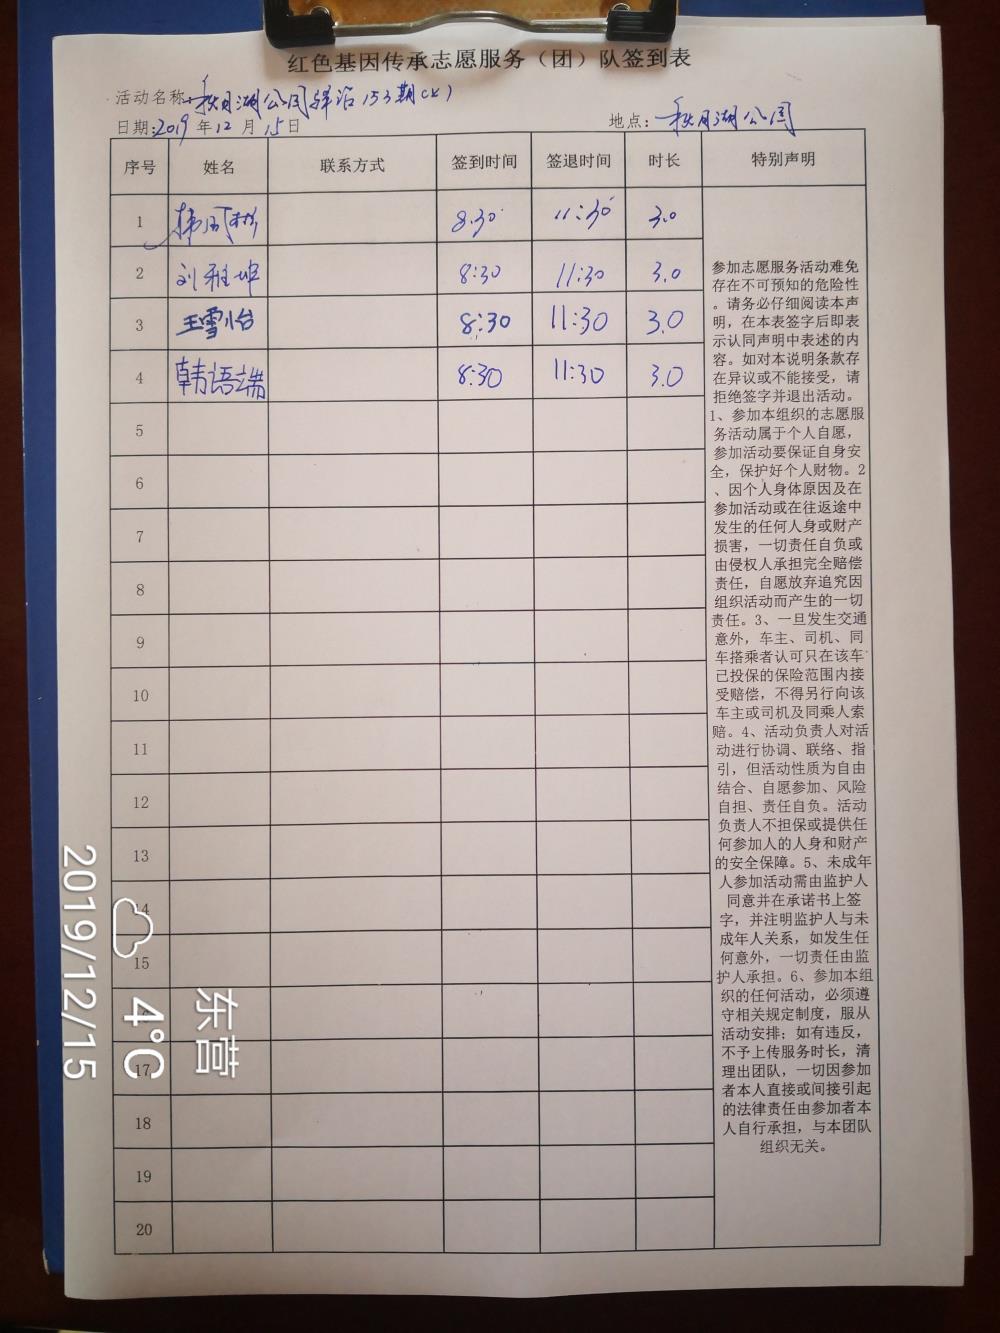 红色基因传承志愿服务（团）队签到表
活动名称：秋月湖公园驿站153期(上)
日期：2019年12月15日 地点：秋月湖公园
序号 姓名 联系方式 签到时间 签退时间 时长 特别声明
1 8:30 11:30 3.0
2 刘雅坤 8:30 11:30 3.0
3 王雪怡 8:30 11:30 3.0
4 韩语端 8:30 11:30 3.0
5
6
7
8
9
10
11
12
13
14
15
17
18
19
20
参加志愿服务活动难免
存在不可预知的危险性
。请务必仔细阅读本声
明，在本表签字后即表
示认同声明中表述的内
容。如对本说明条款存
在异议或不能接受，请
拒绝签字并退出活动。
1、参加本组织的志愿服
务活动属于个人自愿，
参加活动要保证自身安
全，保护好个人财物。2
、因个人身体原因及在
参加活动或在往返途中
发生的任何人身或财产
损害，一切责任自负或
由侵权人承担完全赔偿
责任，自愿放弃追究因
组织活动而产生的一切
责任。3、一旦发生交通
意外，车主、司机、同
车搭乘者认可只在该车
已投保的保险范围内接
受赔偿，不得另行向该
车主或司机及同乘人索
赔。4、活动负责人对活
动进行协调、联络、指
引，但活动性质为自由
结合、自愿参加、风险
自担、责任自负。活动
负责人不担保或提供任
何参加人的人身和财产
的安全保障。5、未成年
人参加活动需由监护人
同意并在承诺书上签
字，并注明监护人与未
成年人关系，如发生任
何意外，一切责任由监
护人承担。6、参加本组
织的任何活动，必须遵
守相关规定制度，服从
活动安排；如有违反，
不予上传服务时长，清
理出团队，一切因参加
者本人直接或间接引起
的法律责任由参加者本
人自行承担，与本团队
组织无关。
东营
4°C
2019/12/15